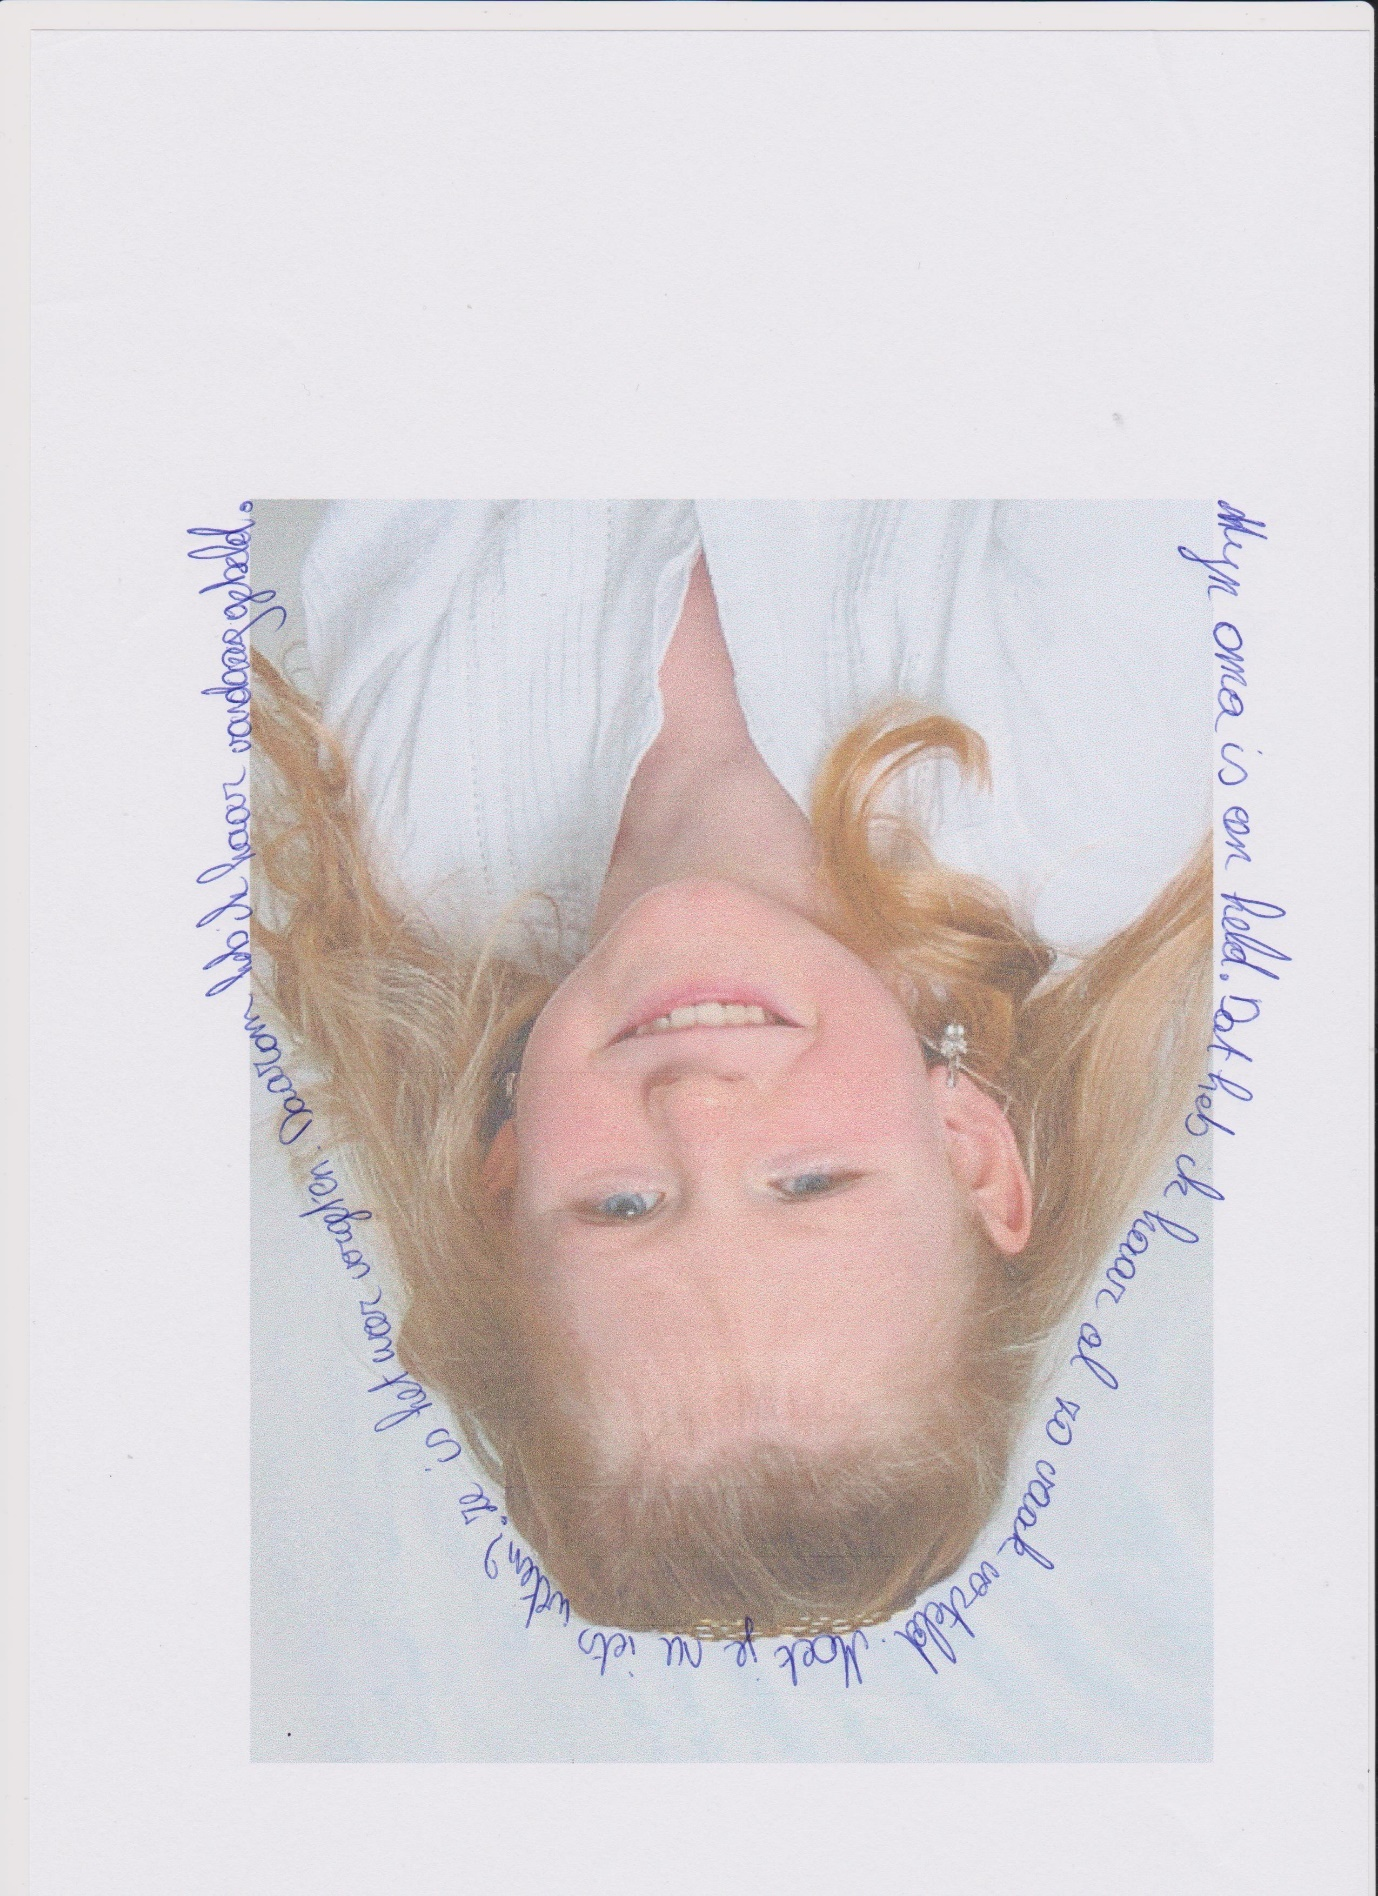 Mijn oma is een held. Dat heb ik haar al zo vaak verteld. Moet je nu iets weten? Ze is het weer vergeten. Daarom heb ik haar vandaag gebeld.